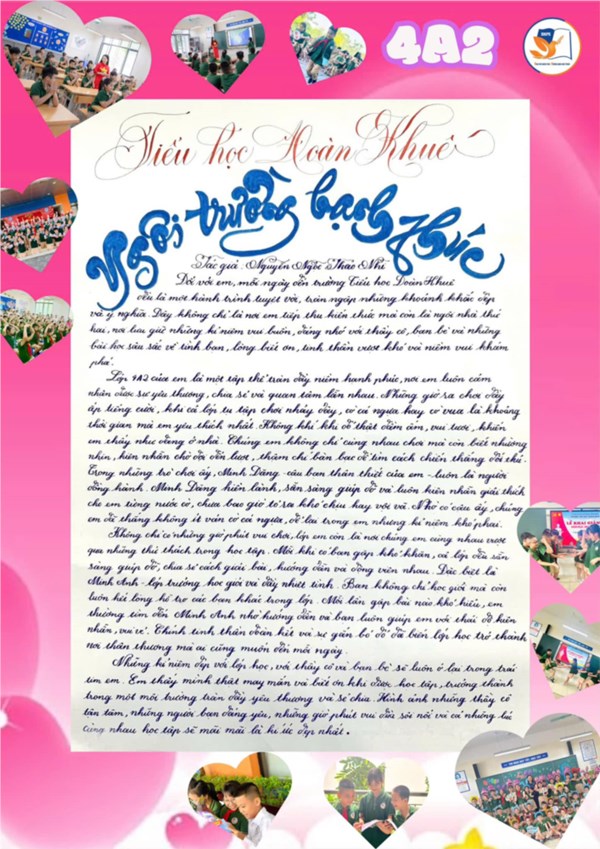 4A2
Tiểu học Đoàn Khuê
Ngôi trường hạnh phúc
Tác giả: Nguyễn Ngọc Thảo Nhi
Đối với em, mỗi ngày đến trường Tiểu học Đoàn Khuê
đều là một hành trình tuyệt vời, tràn ngập những khoảnh khắc đẹp
và ý nghĩa. Đây không chỉ là nơi em tiếp thu kiến thức mà còn là ngôi nhà thứ
hai, nơi lưu giữ những kỉ niệm vui buồn, đáng nhớ với thầy cô, bạn bè và những
bài học sâu sắc về tình bạn, lòng biết ơn, tinh thần vượt khó và niềm vui khám
phá.
Lớp 4A2 của em là một tập thể tràn đầy niềm hạnh phúc, nơi em luôn cảm
nhận được sự yêu thương, chia sẻ và quan tâm lẫn nhau. Những giờ ra chơi đầy
ắp tiếng cười, khi cả lớp tụ tập chơi nhảy dây, cờ cá ngựa hay cờ vua là khoảng
thời gian mà em yêu thích nhất. Không khí khi đó thật đầm ấm, vui tươi, khiến
em thấy như đang ở nhà. Chúng em không chỉ cùng nhau chơi mà còn biết nhường
nhịn, kiên nhẫn chờ đợi đến lượt, thậm chí bàn bạc để tìm cách chiến thắng đối thủ.
Trong những trò chơi ấy, Minh Đăng - cậu bạn thân thiết của em - luôn là người
đồng hành. Minh Đăng hiền lành, sẵn sàng giúp đỡ và luôn kiên nhẫn giải thích
cho em từng nước cờ, chưa bao giờ tỏ ra khó chịu hay vội vã. Nhờ có cậu ấy, chúng
em đã thắng không ít ván cờ cá ngựa, để lại trong em những kỉ niệm khó phai.
Không chỉ có những giờ phút vui chơi, lớp em còn là nơi chúng em cùng nhau vượt
qua những thử thách trong học tập. Mỗi khi có bạn gặp khó khăn, cả lớp đều sẵn
sàng giúp đỡ, chia sẻ cách giải bài, hướng dẫn và động viên nhau. Đặc biệt là
Minh Anh - lớp trưởng học giỏi và đầy nhiệt tình. Bạn không chỉ học giỏi mà còn
luôn hết lòng hỗ trợ các bạn khác trong lớp. Mỗi lần gặp bài nào khó hiểu, em
thường tìm đến Minh Anh nhờ hướng dẫn và bạn luôn giúp em với thái độ kiên
nhẫn, vui vẻ. Chính tinh thần đoàn kết và sự gắn bó đó đã biến lớp học trở thành
nơi thân thương mà ai cũng muốn đến mỗi ngày.
Những kỉ niệm đẹp với lớp học, với thầy cô và bạn bè sẽ luôn ở lại trong trái
tim em. Em thấy mình thật may mắn và biết ơn khi được học tập, trưởng thành
trong một môi trường tràn đầy yêu thương và sẻ chia. Hình ảnh những thầy cô
tận tâm, những người bạn đáng yêu, những giờ phút vui đùa sôi nổi và cả những lúc
cùng nhau học tập sẽ mãi mãi là kí ức đẹp nhất.